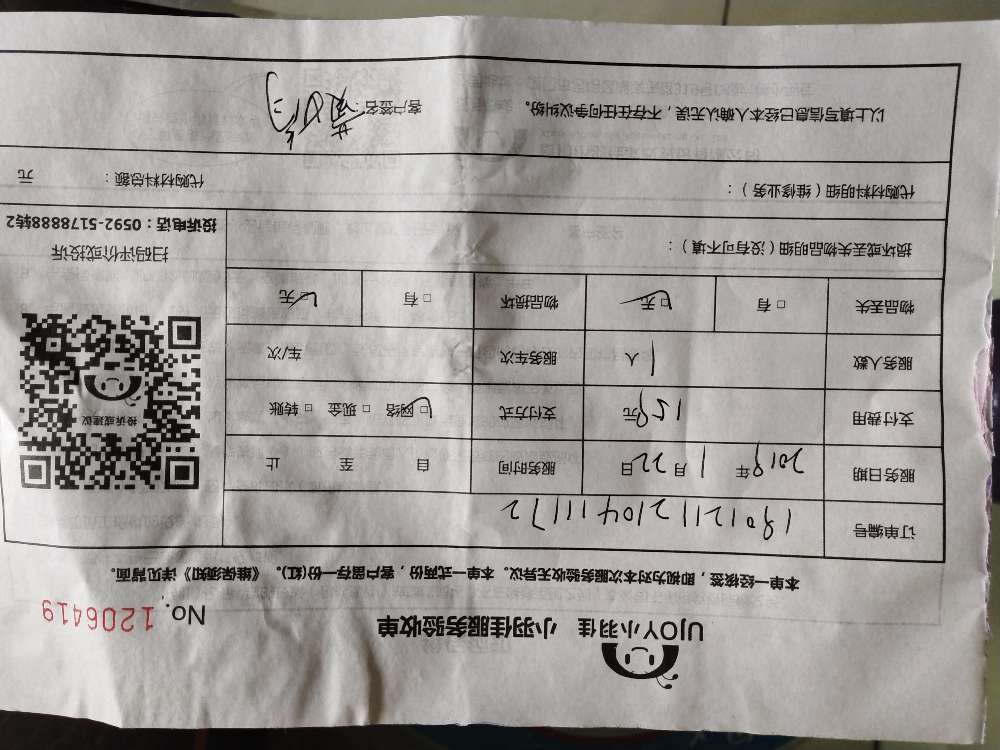 UJOY小羽佳 小羽佳服务验收单
No. 1206419
本单一经核签，即视为对本次服务验收无异议。本单一式两份，客户留存一份(红)。《维保须知》详见背面。
订单编号 190121121041111172
服务日期 2019年 1月22日 服务时间 自 至 止
支付费用 159元 支付方式 ☑ 网络 □ 现金 □ 转账
服务人数 1人 服务车次 车/次
物品丢失 □ 有 ☑ 无 物品损坏 □ 有 ☑ 无
投诉或建议
扫码评价或投诉
投诉电话：0592-5178888转2
损坏或丢失物品明细（没有可不填）：
代购材料明细（维修业务）：
代购材料总额： 元
以上填写信息已经本人确认无误，不存在任何争议纠纷。 客户签名：